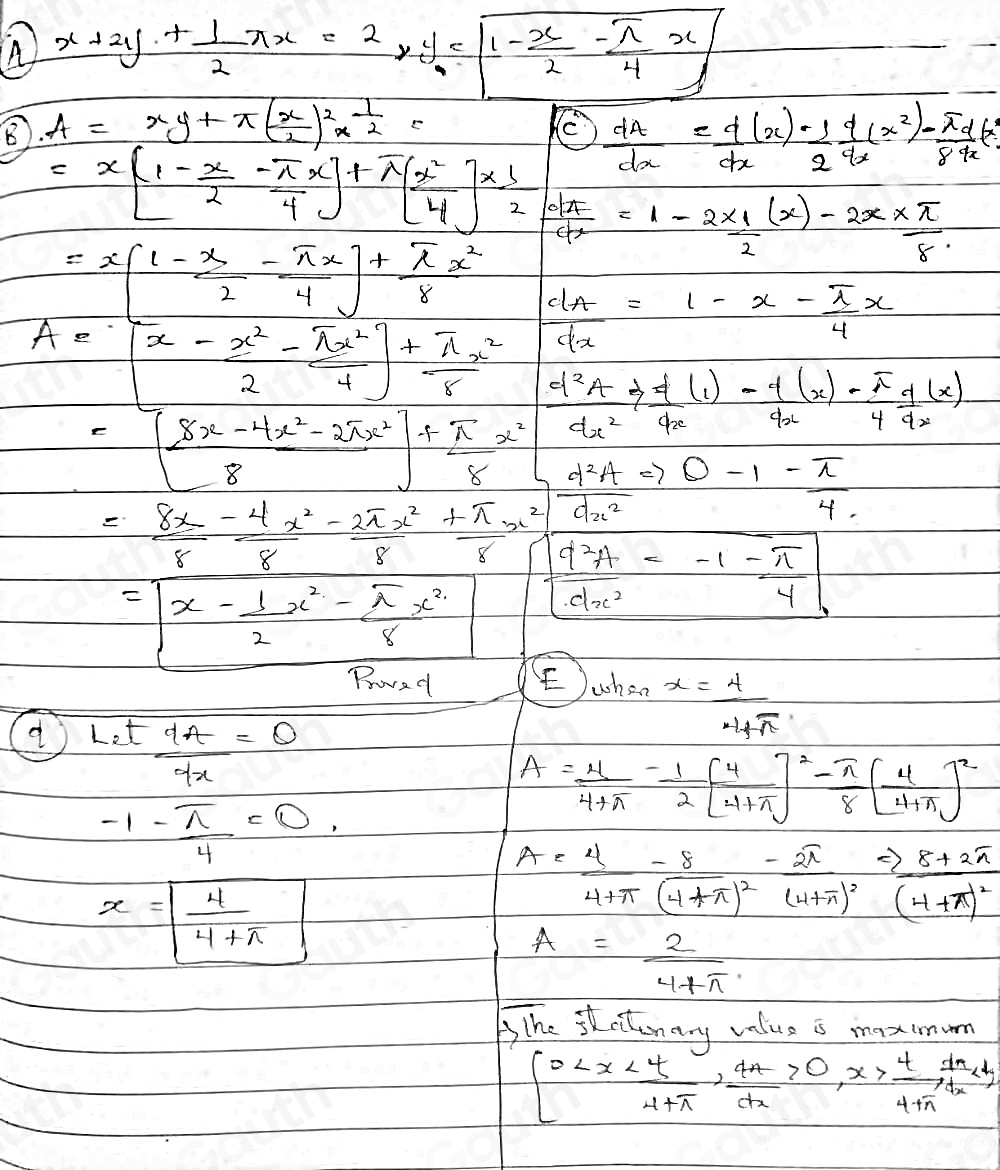 A x + 2y + 1/2 πx = 2, y = 1 - x/2 - π/4 x
B. A = xy + π(x/2)² × 1/2 =
= x[1 - x/2 - π/4 x] + π[x²/4] × 1/2
= x[1 - x/2 - πx/4] + π/8 x²
A = [x - x²/2 - πx²/4] + π/8 x²
= [8x - 4x² - 2πx²/8] + π/8 x²
= 8x/8 - 4/8 x² - 2π/8 x² + π/8 x²
= x - 1/2 x² - π/8 x²
Proved
C dA/dx = d/dx (x) - 1/2 d/dx (x²) - π/8 d/dx (x²)
dA/dx = 1 - 2×1/2 (x) - 2x × π/8.
dA/dx = 1 - x - π/4 x
d²A/dx² => d/dx (1) - d/dx (x) - π/4 d/dx (x)
d²A/dx² => 0 - 1 - π/4.
d²A/dx² = -1 - π/4
d Let dA/dx = 0
-1 - π/4 = 0,
x = 4/4+π
E when x = 4/4+π
A = 4/4+π - 1/2 [4/4+π]² - π/8 [4/4+π]²
A = 4/4+π - 8/(4+π)² - 2π/(4+π)² => 8+2π/(4+π)²
A = 2/4+π
→ The stationary value is maximum
[0 < x < 4/4+π, dA/dx > 0, x > 4/4+π, dA/dx <